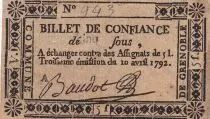 No 943
BILLET DE CONFIANCE
de cinq sous,
A échanger contre des Assignats de 5 l.
Troisieme émission du 10 avril 1792.
Baudot
DE GRENOBLE